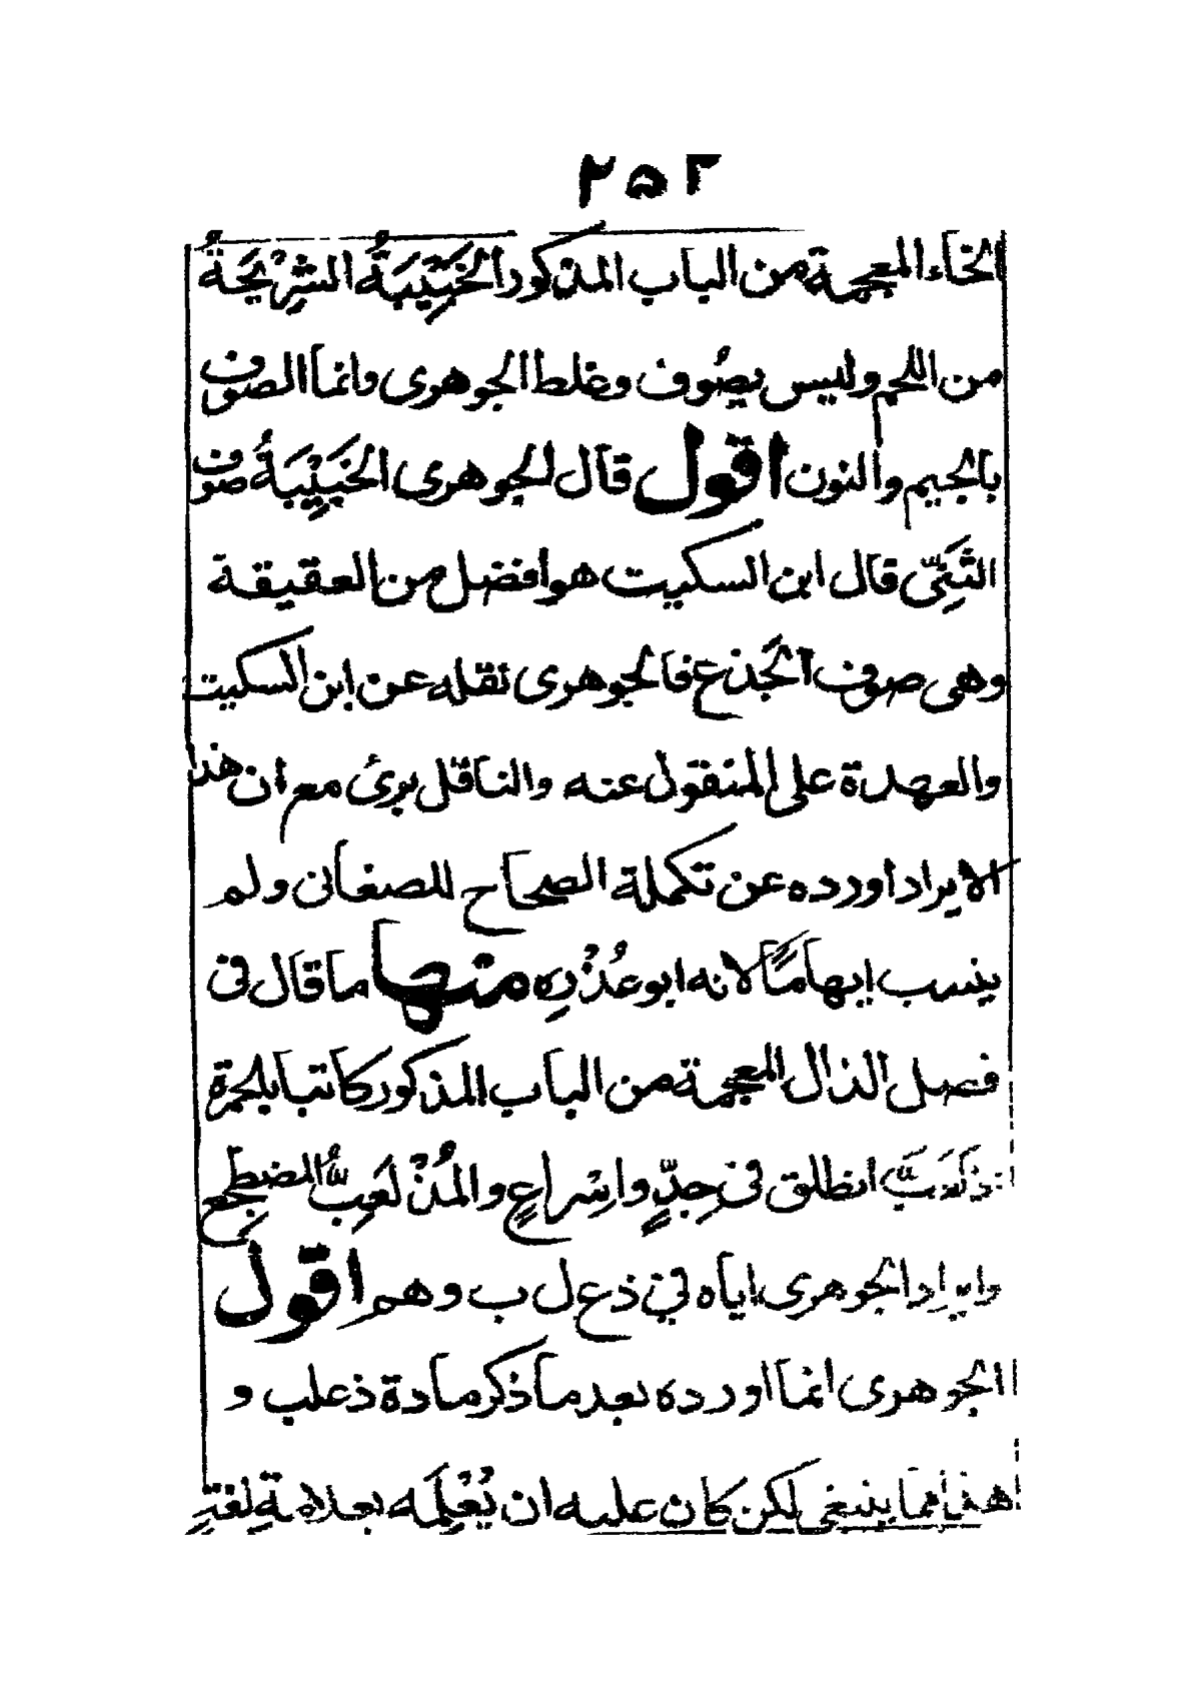 ٢٥٢
الخاء المعجمة من الباب المذكور الخَبِيْبَةُ الشرِيْحَةُ
من اللحم وليس بصُوف وغلط الجوهرى وانما الصوف
بالجيم والنون اقول قال الجوهرى الخَبِيْبَةُ صوف
الثَنِىّ قال ابن السكيت هو افضل من العقيقة
وهى صوف الجَذع فالجوهرى نقله عن ابن السكيت
والعهدة على المنقول عنه والناقل برئ مع ان هذا
الايراد اورده عن تكملة الصحاح للصغانى ولم
ينسب ايهامًا لانه ابو عُذْرِه منها ما قال فى
فصل الذال المعجمة من الباب المذكور كاتبا بالحمرة
انطلق فى جِدٍّ واسْراعٍ والمُذْلَعِبُّ المضطجع
وايراد الجوهرى اياه في ذ ع ل ب وهم اقول
الجوهرى انما اورده بعد ما ذكر مادة ذعلب و
هذا مما ينبغى لكن كان عليه ان يُعْلِمَه بعلامةِ لغةٍ